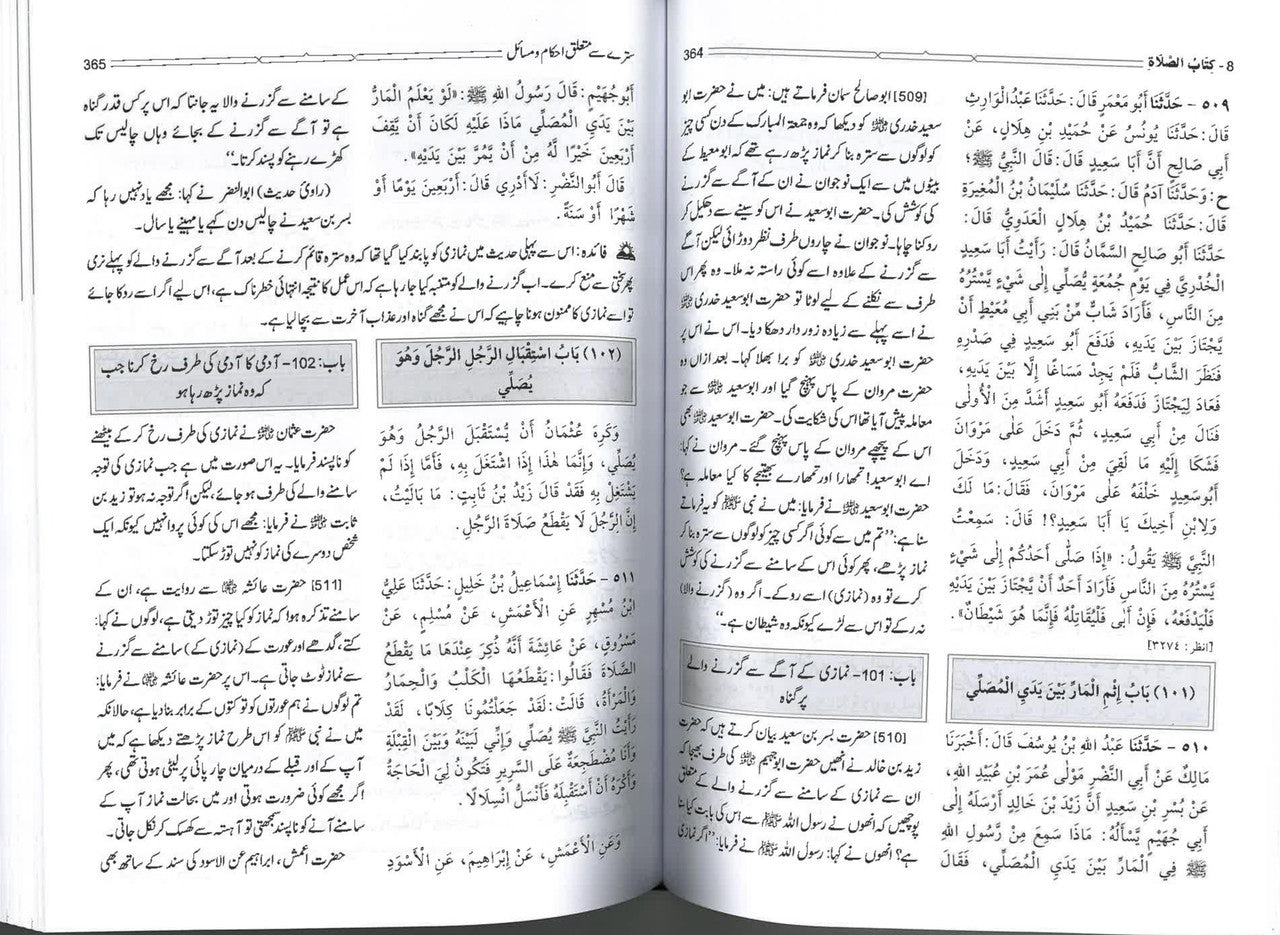 8- كِتَابُ الصَّلَاةِ
364
٥٠٩ - حَدَّثَنَا أَبُو مَعْمَرٍ قَالَ: حَدَّثَنَا عَبْدُ الْوَارِثِ
قَالَ: حَدَّثَنَا يُونُسُ عَنْ حُمَيْدِ بْنِ هِلَالٍ، عَنْ
أَبِي صَالِحٍ أَنَّ أَبَا سَعِيدٍ قَالَ: قَالَ النَّبِيُّ ﷺ؛
ح: وَحَدَّثَنَا آدَمُ قَالَ: حَدَّثَنَا سُلَيْمَانُ بْنُ الْمُغِيرَةِ
قَالَ: حَدَّثَنَا حُمَيْدُ بْنُ هِلَالٍ الْعَدَوِيُّ قَالَ:
حَدَّثَنَا أَبُو صَالِحٍ السَّمَّانُ قَالَ: رَأَيْتُ أَبَا سَعِيدٍ
الْخُدْرِيَّ فِي يَوْمِ جُمُعَةٍ يُصَلِّي إِلَى شَيْءٍ يَسْتُرُهُ
مِنَ النَّاسِ، فَأَرَادَ شَابٌّ مِّنْ بَنِي أَبِي مُعَيْطٍ أَنْ
يَجْتَازَ بَيْنَ يَدَيْهِ، فَدَفَعَ أَبُو سَعِيدٍ فِي صَدْرِهِ
فَنَظَرَ الشَّابُّ فَلَمْ يَجِدْ مَسَاغًا إِلَّا بَيْنَ يَدَيْهِ،
فَعَادَ لِيَجْتَازَ فَدَفَعَهُ أَبُو سَعِيدٍ أَشَدَّ مِنَ الْأُولَى
فَنَالَ مِنْ أَبِي سَعِيدٍ، ثُمَّ دَخَلَ عَلَى مَرْوَانَ
فَشَكَا إِلَيْهِ مَا لَقِيَ مِنْ أَبِي سَعِيدٍ، وَدَخَلَ
أَبُو سَعِيدٍ خَلْفَهُ عَلَى مَرْوَانَ، فَقَالَ: مَا لَكَ
وَلِابْنِ أَخِيكَ يَا أَبَا سَعِيدٍ؟! قَالَ: سَمِعْتُ
النَّبِيَّ ﷺ يَقُولُ: «إِذَا صَلَّى أَحَدُكُمْ إِلَى شَيْءٍ
يَسْتُرُهُ مِنَ النَّاسِ فَأَرَادَ أَحَدٌ أَنْ يَجْتَازَ بَيْنَ يَدَيْهِ
فَلْيَدْفَعْهُ، فَإِنْ أَبَى فَلْيُقَاتِلْهُ فَإِنَّمَا هُوَ شَيْطَانٌ».
[انظر: ٣٢٧٤]
(١٠١) بَابُ إِثْمِ الْمَارِّ بَيْنَ يَدَيِ الْمُصَلِّي
٥١٠ - حَدَّثَنَا عَبْدُ اللهِ بْنُ يُوسُفَ قَالَ: أَخْبَرَنَا
مَالِكٌ عَنْ أَبِي النَّضْرِ مَوْلَى عُمَرَ بْنِ عُبَيْدِ اللهِ،
عَنْ بُسْرِ بْنِ سَعِيدٍ أَنَّ زَيْدَ بْنَ خَالِدٍ أَرْسَلَهُ إِلَى
أَبِي جُهَيْمٍ يَسْأَلُهُ: مَاذَا سَمِعَ مِنْ رَّسُولِ اللهِ
ﷺ فِي الْمَارِّ بَيْنَ يَدَيِ الْمُصَلِّي، فَقَالَ
[509] ابوصالح سمان فرماتے ہیں: میں نے حضرت ابو
سعید خدری رضی اللہ عنہ کو دیکھا کہ وہ جمعۃ المبارک کے دن کسی چیز
کو لوگوں سے سترہ بنا کر نماز پڑھ رہے تھے کہ ابومعیط کے
بیٹوں میں سے ایک نوجوان نے ان کے آگے سے گزرنے
کی کوشش کی۔ حضرت ابوسعید نے اس کو سینے سے دھکیل کر
روکنا چاہا۔ نوجوان نے چاروں طرف نظر دوڑائی لیکن آگے
سے گزرنے کے علاوہ اسے کوئی راستہ نہ ملا۔ وہ پھر اس
طرف سے نکلنے کے لیے لوٹا تو حضرت ابوسعید خدری رضی اللہ عنہ
نے اسے پہلے سے زیادہ زور دار دھکا دیا۔ اس نے اس پر
حضرت ابوسعید خدری رضی اللہ عنہ کو برا بھلا کہا۔ بعد ازاں وہ
حضرت مروان کے پاس پہنچ گیا اور ابوسعید رضی اللہ عنہ سے جو
معاملہ پیش آیا تھا اس کی شکایت کی۔ حضرت ابوسعید رضی اللہ عنہ بھی
اس کے پیچھے مروان کے پاس پہنچ گئے۔ مروان نے کہا:
اے ابوسعید! تمھارا اور تمھارے بھتیجے کا کیا معاملہ ہے؟
حضرت ابوسعید رضی اللہ عنہ نے فرمایا: میں نے نبی ﷺ کو یہ فرماتے
سنا ہے: ’’تم میں سے کوئی اگر کسی چیز کو لوگوں سے سترہ بنا کر
نماز پڑھے، پھر کوئی اس کے سامنے سے گزرنے کی کوشش
کرے تو وہ (نمازی) اسے روکے۔ اگر وہ (گزرنے والا)
نہ رکے تو اس سے لڑے کیونکہ وہ شیطان ہے۔‘‘
باب: 101- نمازی کے آگے سے گزرنے والے
پر گناہ
[510] حضرت بسر بن سعید بیان کرتے ہیں کہ حضرت
زید بن خالد نے انھیں حضرت ابوجہیم رضی اللہ عنہ کی طرف بھیجا کہ
ان سے نمازی کے سامنے سے گزرنے والے کے متعلق
پوچھیں کہ انھوں نے رسول اللہ ﷺ سے اس کی بابت کیا سنا
ہے؟ انھوں نے کہا: رسول اللہ ﷺ نے فرمایا: ’’اگر نمازی
سترے سے متعلق احکام و مسائل
365
أَبُو جُهَيْمٍ: قَالَ رَسُولُ اللهِ ﷺ: «لَوْ يَعْلَمُ الْمَارُّ
بَيْنَ يَدَيِ الْمُصَلِّي مَاذَا عَلَيْهِ لَكَانَ أَنْ يَّقِفَ
أَرْبَعِينَ خَيْرًا لَهُ مِنْ أَنْ يَّمُرَّ بَيْنَ يَدَيْهِ».
قَالَ أَبُو النَّضْرِ: لَا أَدْرِي قَالَ: أَرْبَعِينَ يَوْمًا أَوْ
شَهْرًا أَوْ سَنَةً.
کے سامنے سے گزرنے والا یہ جانتا کہ اس پر کس قدر گناہ
ہے تو آگے سے گزرنے کے بجائے وہاں چالیس تک
کھڑے رہنے کو پسند کرتا۔‘‘
(راویٔ حدیث) ابوالنضر نے کہا: مجھے یاد نہیں رہا کہ
بسر بن سعید نے چالیس دن کہے یا مہینے یا سال۔
فائدہ: اس سے پہلی حدیث میں نمازی کو پابند کیا گیا تھا کہ وہ سترہ قائم کرنے کے بعد آگے سے گزرنے والے کو پہلے نرمی
پھر سختی سے منع کرے۔ اب گزرنے والے کو متنبہ کیا جا رہا ہے کہ اس عمل کا نتیجہ انتہائی خطرناک ہے، اس لیے اگر اسے روکا جائے
تو اسے نمازی کا ممنون ہونا چاہیے کہ اس نے مجھے گناہ اور عذاب آخرت سے بچا لیا ہے۔
(١٠٢) بَابُ اسْتِقْبَالِ الرَّجُلِ الرَّجُلَ وَهُوَ
يُصَلِّي
وَكَرِهَ عُثْمَانُ أَنْ يُّسْتَقْبَلَ الرَّجُلُ وَهُوَ
يُصَلِّي، وَإِنَّمَا هٰذَا إِذَا اشْتَغَلَ بِهِ، فَأَمَّا إِذَا لَمْ
يَشْتَغِلْ بِهِ فَقَدْ قَالَ زَيْدُ بْنُ ثَابِتٍ: مَا بَالَيْتُ،
إِنَّ الرَّجُلَ لَا يَقْطَعُ صَلَاةَ الرَّجُلِ.
٥١١ - حَدَّثَنَا إِسْمَاعِيلُ بْنُ خَلِيلٍ: حَدَّثَنَا عَلِيُّ
ابْنُ مُسْهِرٍ عَنِ الْأَعْمَشِ، عَنْ مُسْلِمٍ، عَنْ
مَسْرُوقٍ، عَنْ عَائِشَةَ أَنَّهُ ذُكِرَ عِنْدَهَا مَا يَقْطَعُ
الصَّلَاةَ فَقَالُوا: يَقْطَعُهَا الْكَلْبُ وَالْحِمَارُ
وَالْمَرْأَةُ، قَالَتْ: لَقَدْ جَعَلْتُمُونَا كِلَابًا، لَقَدْ
رَأَيْتُ النَّبِيَّ ﷺ يُصَلِّي وَإِنِّي لَبَيْنَهُ وَبَيْنَ الْقِبْلَةِ
وَأَنَا مُضْطَجِعَةٌ عَلَى السَّرِيرِ فَتَكُونُ لِيَ الْحَاجَةُ
وَأَكْرَهُ أَنْ أَسْتَقْبِلَهُ فَأَنْسَلُّ انْسِلَالًا.
وَعَنِ الْأَعْمَشِ، عَنْ إِبْرَاهِيمَ، عَنِ الْأَسْوَدِ
باب: 102- آدمی کا آدمی کی طرف رخ کرنا جب
کہ وہ نماز پڑھ رہا ہو
حضرت عثمان رضی اللہ عنہ نے نمازی کی طرف رخ کر کے بیٹھنے
کو ناپسند فرمایا۔ یہ اس صورت میں ہے جب نمازی کی توجہ
سامنے والے کی طرف ہو جائے، لیکن اگر توجہ نہ ہو تو زید بن
ثابت رضی اللہ عنہ نے فرمایا: مجھے اس کی کوئی پروا نہیں کیونکہ ایک
شخص دوسرے کی نماز کو نہیں توڑ سکتا۔
[511] حضرت عائشہ رضی اللہ عنہا سے روایت ہے، ان کے
سامنے تذکرہ ہوا کہ نماز کو کیا چیز توڑ دیتی ہے، لوگوں نے کہا:
کتے، گدھے اور عورت کے (نمازی کے) سامنے سے گزرنے
سے نماز ٹوٹ جاتی ہے۔ اس پر حضرت عائشہ رضی اللہ عنہا نے فرمایا:
تم لوگوں نے ہم عورتوں کو تو کتوں کے برابر بنا دیا ہے، حالانکہ
میں نے نبی ﷺ کو اس طرح نماز پڑھتے دیکھا ہے کہ میں
آپ کے اور قبلے کے درمیان چارپائی پر لیٹی ہوتی تھی، پھر
اگر مجھے کوئی ضرورت ہوتی اور میں بحالت نماز آپ کے
سامنے آنے کو ناپسند سمجھتی تو آہستہ سے کھسک کر نکل جاتی۔
حضرت اعمش، ابراہیم عن الاسود کی سند کے ساتھ بھی